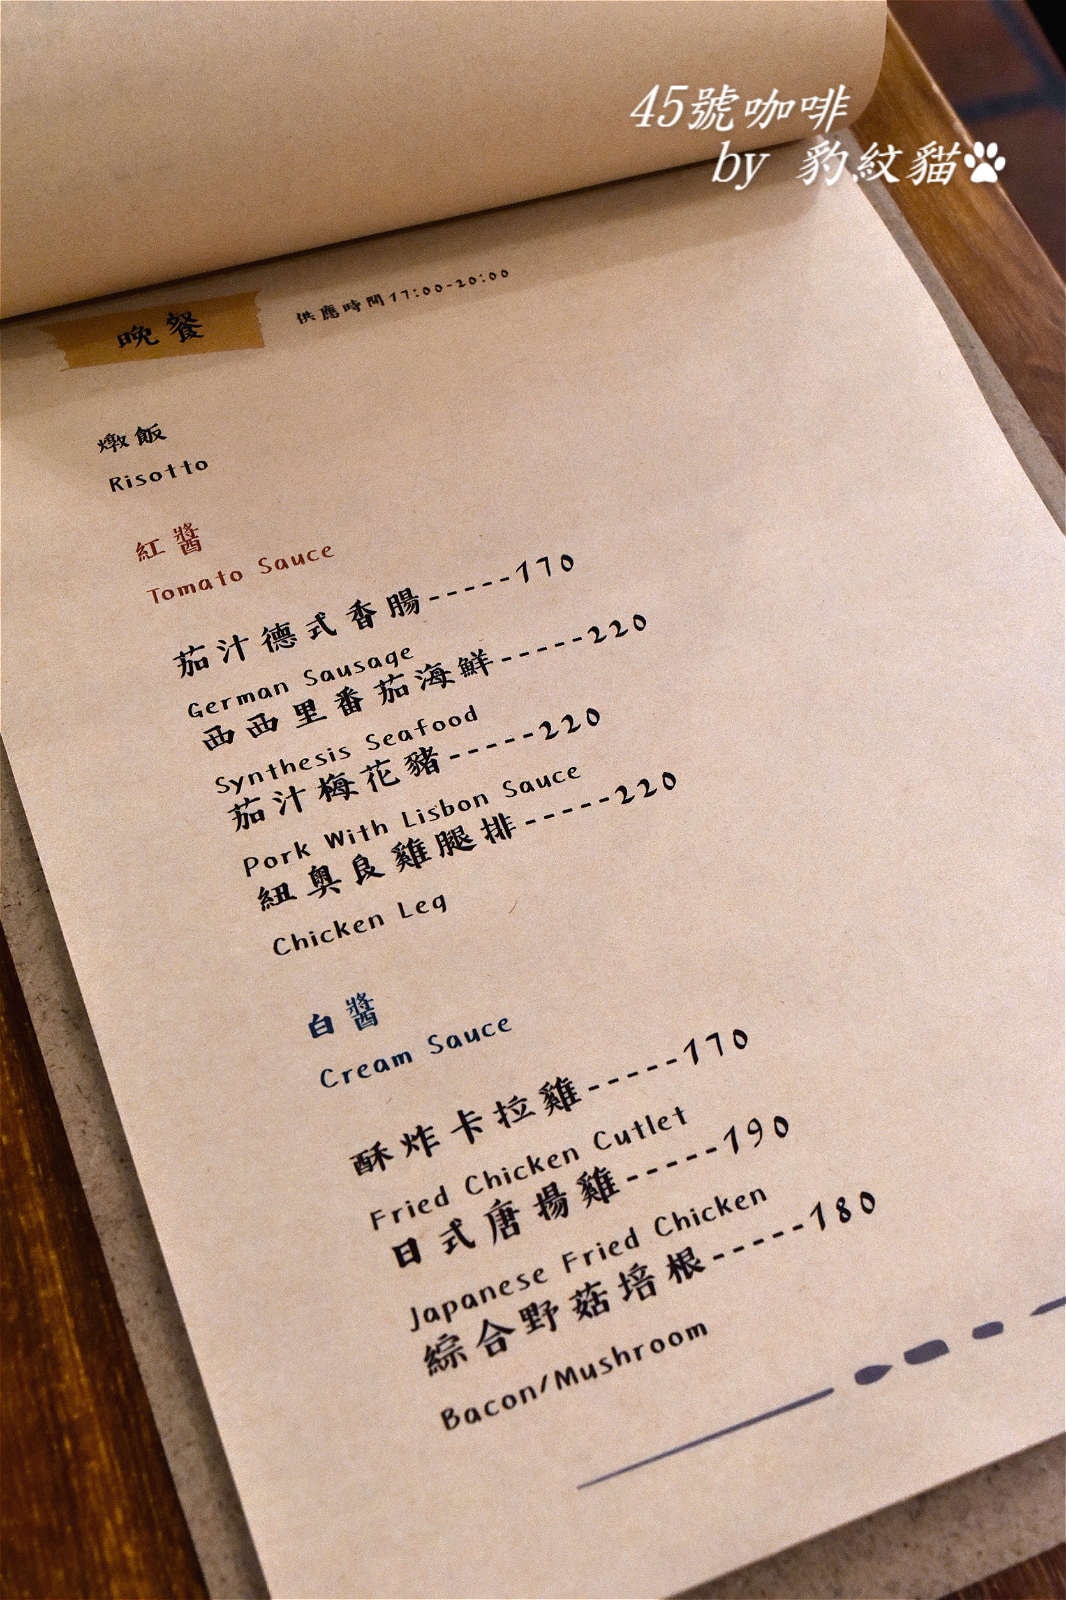 45號咖啡
by 豹紋貓
晚餐 供應時間17:00-20:00
燉飯
Risotto
紅醬
Tomato Sauce
茄汁德式香腸-----170
German Sausage
西西里番茄海鮮-----220
Synthesis Seafood
茄汁梅花豬-----220
Pork With Lisbon Sauce
紐奧良雞腿排-----220
Chicken Leg
白醬
Cream Sauce
酥炸卡拉雞-----170
Fried Chicken Cutlet
日式唐揚雞-----190
Japanese Fried Chicken
綜合野菇培根-----180
Bacon/Mushroom